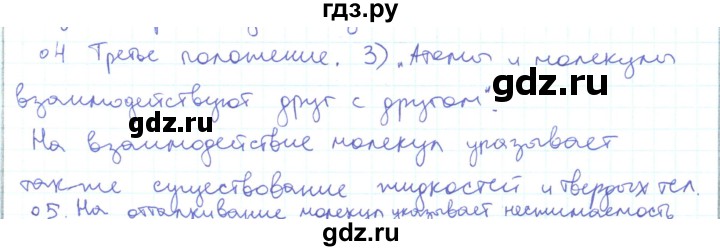 гдз.ру
04 Третье положение. 3) „Атомы и молекулы
взаимодействуют друг с другом".
gdz.ru
gdz.ru
На взаимодействие молекул указывает
также существование жидкостей и твердых тел.
05. На отталкивание молекул указывает несжимаемость
gdz.ru
gdz.ru